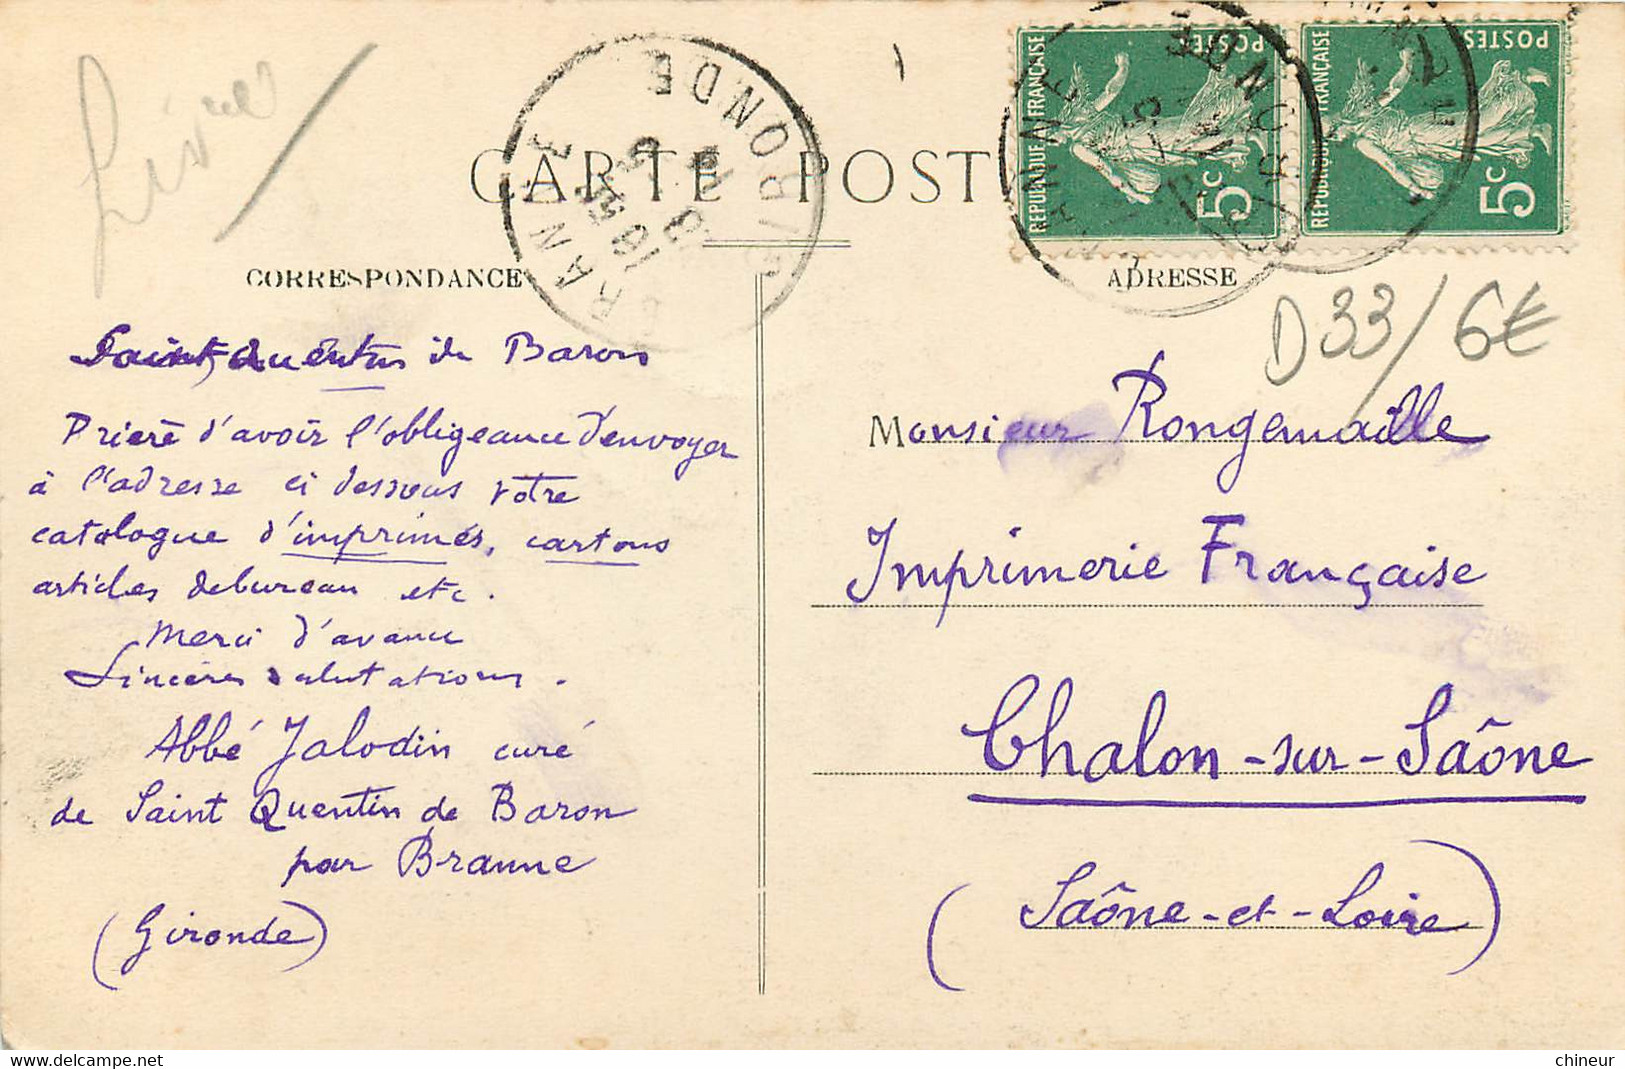 CARTE POST
CORRESPONDANCE
ADRESSE
REPUBLIQUE FRANÇAISE
POSTES
5c
REPUBLIQUE FRANÇAISE
POSTES
5c
BRANNE
GIRONDE
D33/6€
Saint Quentin de Baron
Prière d'avoir l'obligeance d'envoyer
à l'adresse ci dessous votre
catalogue d'imprimés, cartons
articles de bureau etc.
Merci d'avance
Sincères salutations.
Abbé Jalodin curé
de Saint Quentin de Baron
par Branne
(Gironde)
Monsieur Rongemaille
Imprimerie Française
Chalon-sur-Saône
(Saône-et-Loire)
chineur